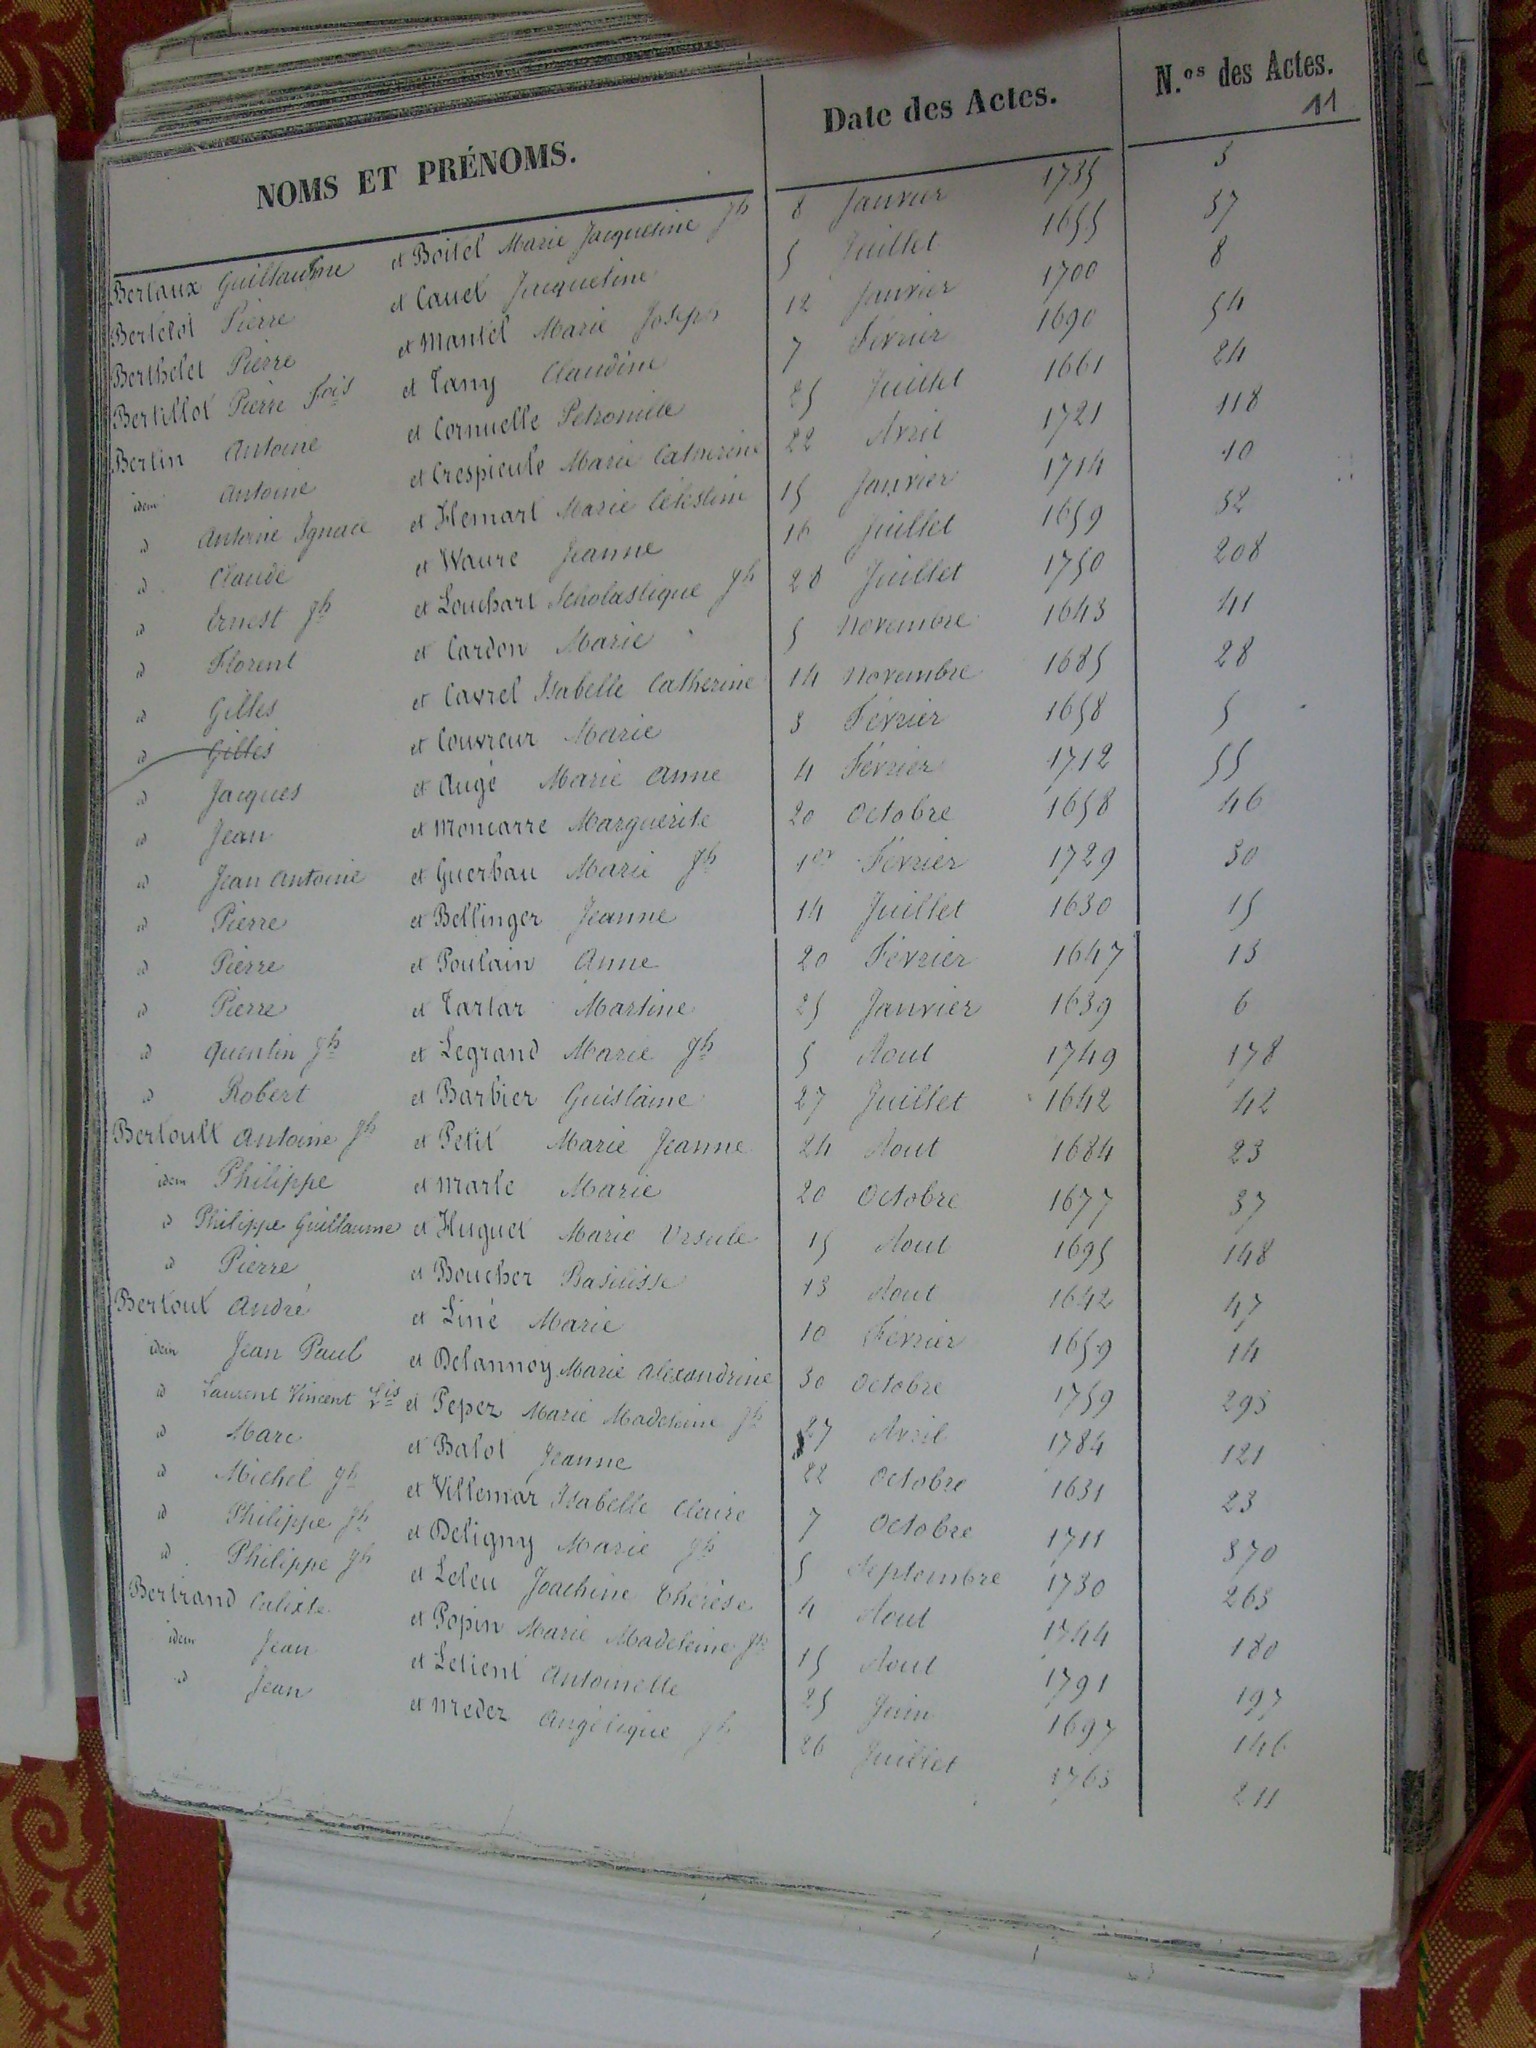 NOMS ET PRÉNOMS. Date des Actes. N.os des Actes.
11
Bertaux Guillaume et Boitel Marie Jacqueline Jh 8 Janvier 1735 3
Bertelot Pierre et Cauet Jacqueline 5 Juillet 1655 37
Berthelet Pierre et Mantel Marie Joseph 12 Janvier 1700 8
Bertillot Pierre fois et Tany Claudine 7 Février 1690 54
Bertin Antoine et Cornuelle Petronille 25 Juillet 1661 24
idem Antoine et Crespieule Marie Catherine 22 Avril 1721 118
id Antoine Ignace et Hemart Marie Célestine 15 Janvier 1714 10
id Claude et Waure Jeanne 16 Juillet 1659 32
id Ernest Jh et Louchart Scholastique Jh 28 Juillet 1750 208
id Florent et Cardon Marie 5 novembre 1643 41
id Gilles et Cavrel Isabelle Catherine 14 novembre 1685 28
id Gilles et Couvreur Marie 3 Février 1658 5
id Jacques et Augé Marie Anne 4 Février 1712 55
id Jean et Moncarre Marguerite 20 octobre 1658 46
id Jean Antoine et Guerbau Marie Jh 1er Février 1729 30
id Pierre et Bellinger Jeanne 14 Juillet 1630 15
id Pierre et Poulain Anne 20 Février 1647 13
id Pierre et Tartar Martine 25 Janvier 1639 6
id Quentin Jh et Legrand Marie Jh 5 Aout 1749 178
id Robert et Barbier Guislaine 27 Juillet 1642 42
Bertoult Antoine Jh et Petit Marie Jeanne 24 Aout 1684 23
idem Philippe et Marle Marie 20 octobre 1677 37
id Philippe Guillaume et Huguet Marie Ursule 15 Aout 1695 148
id Pierre et Boucher Basilisse 13 Aout 1642 47
Bertout André et Liné Marie 10 Février 1659 14
idem Jean Paul et Delannoy Marie Alexandrine 30 octobre 1759 293
id Laurent Vincent Lis et Pepez Marie Madeleine Jh 27 Avril 1784 121
id Marc et Balot Jeanne 22 octobre 1631 23
id Michel Jh et Villemar Isabelle Claire 7 octobre 1711 370
id Philippe Jh et Deligny Marie Jh 5 Septembre 1730 263
id Philippe Jh et Leleu Joachine Thérèse 4 Aout 1744 180
Bertrand Calixte et Popin Marie Madeleine Jh 15 Aout 1791 197
idem Jean et Letient Antoinette 25 Juin 1697 146
id Jean et Medez Angélique Jh 26 Juillet 1763 211